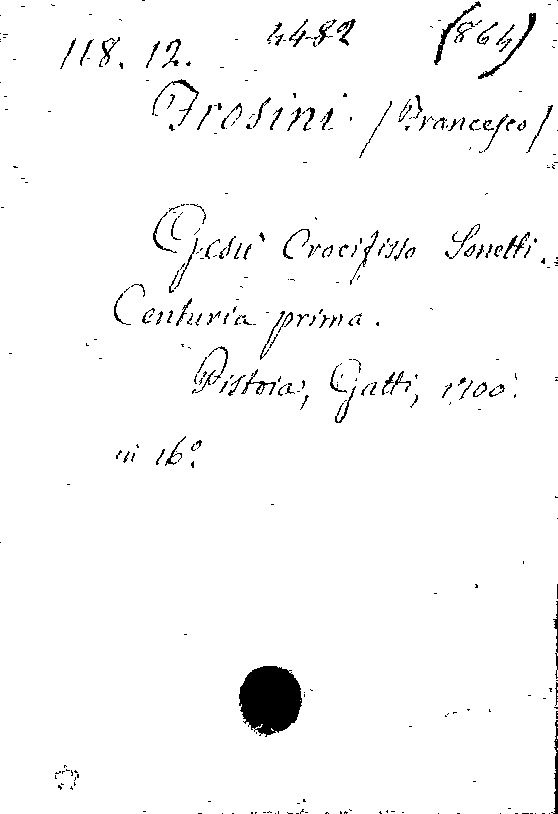 118. 12. 4482 (864)
Frosini. /Francesco/
Gesù Crocifisso Sonetti.
Centuria prima.
Pistoia, Gatti, 1700.
in 16º.